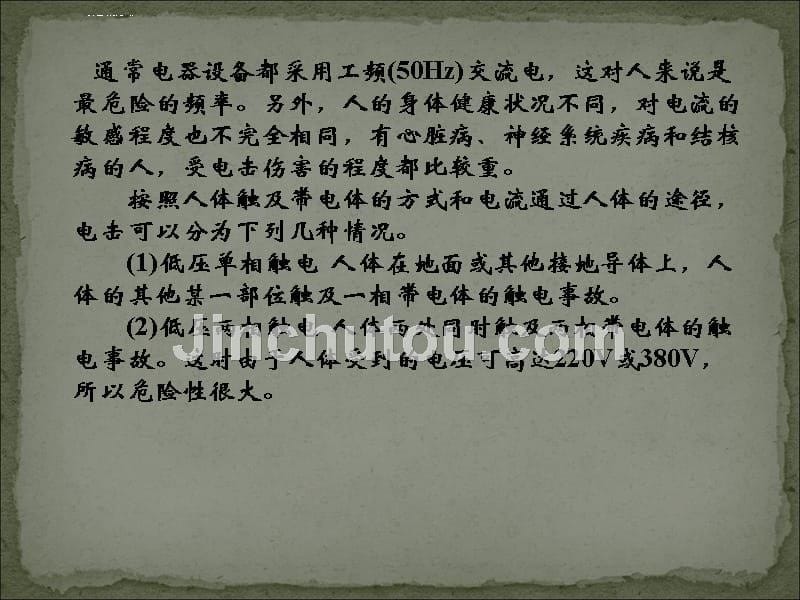 通常电器设备都采用工频(50Hz)交流电，这对人来说是
最危险的频率。另外，人的身体健康状况不同，对电流的
敏感程度也不完全相同，有心脏病、神经系统疾病和结核
病的人，受电击伤害的程度都比较重。
按照人体触及带电体的方式和电流通过人体的途径，
电击可以分为下列几种情况。
(1)低压单相触电 人体在地面或其他接地导体上，人
体的其他某一部位触及一相带电体的触电事故。
(2)低压两相触电 人体两处同时触及两相带电体的触
电事故。这时由于人体受到的电压可高达220V或380V，
所以危险性很大。
Jinchutou.com